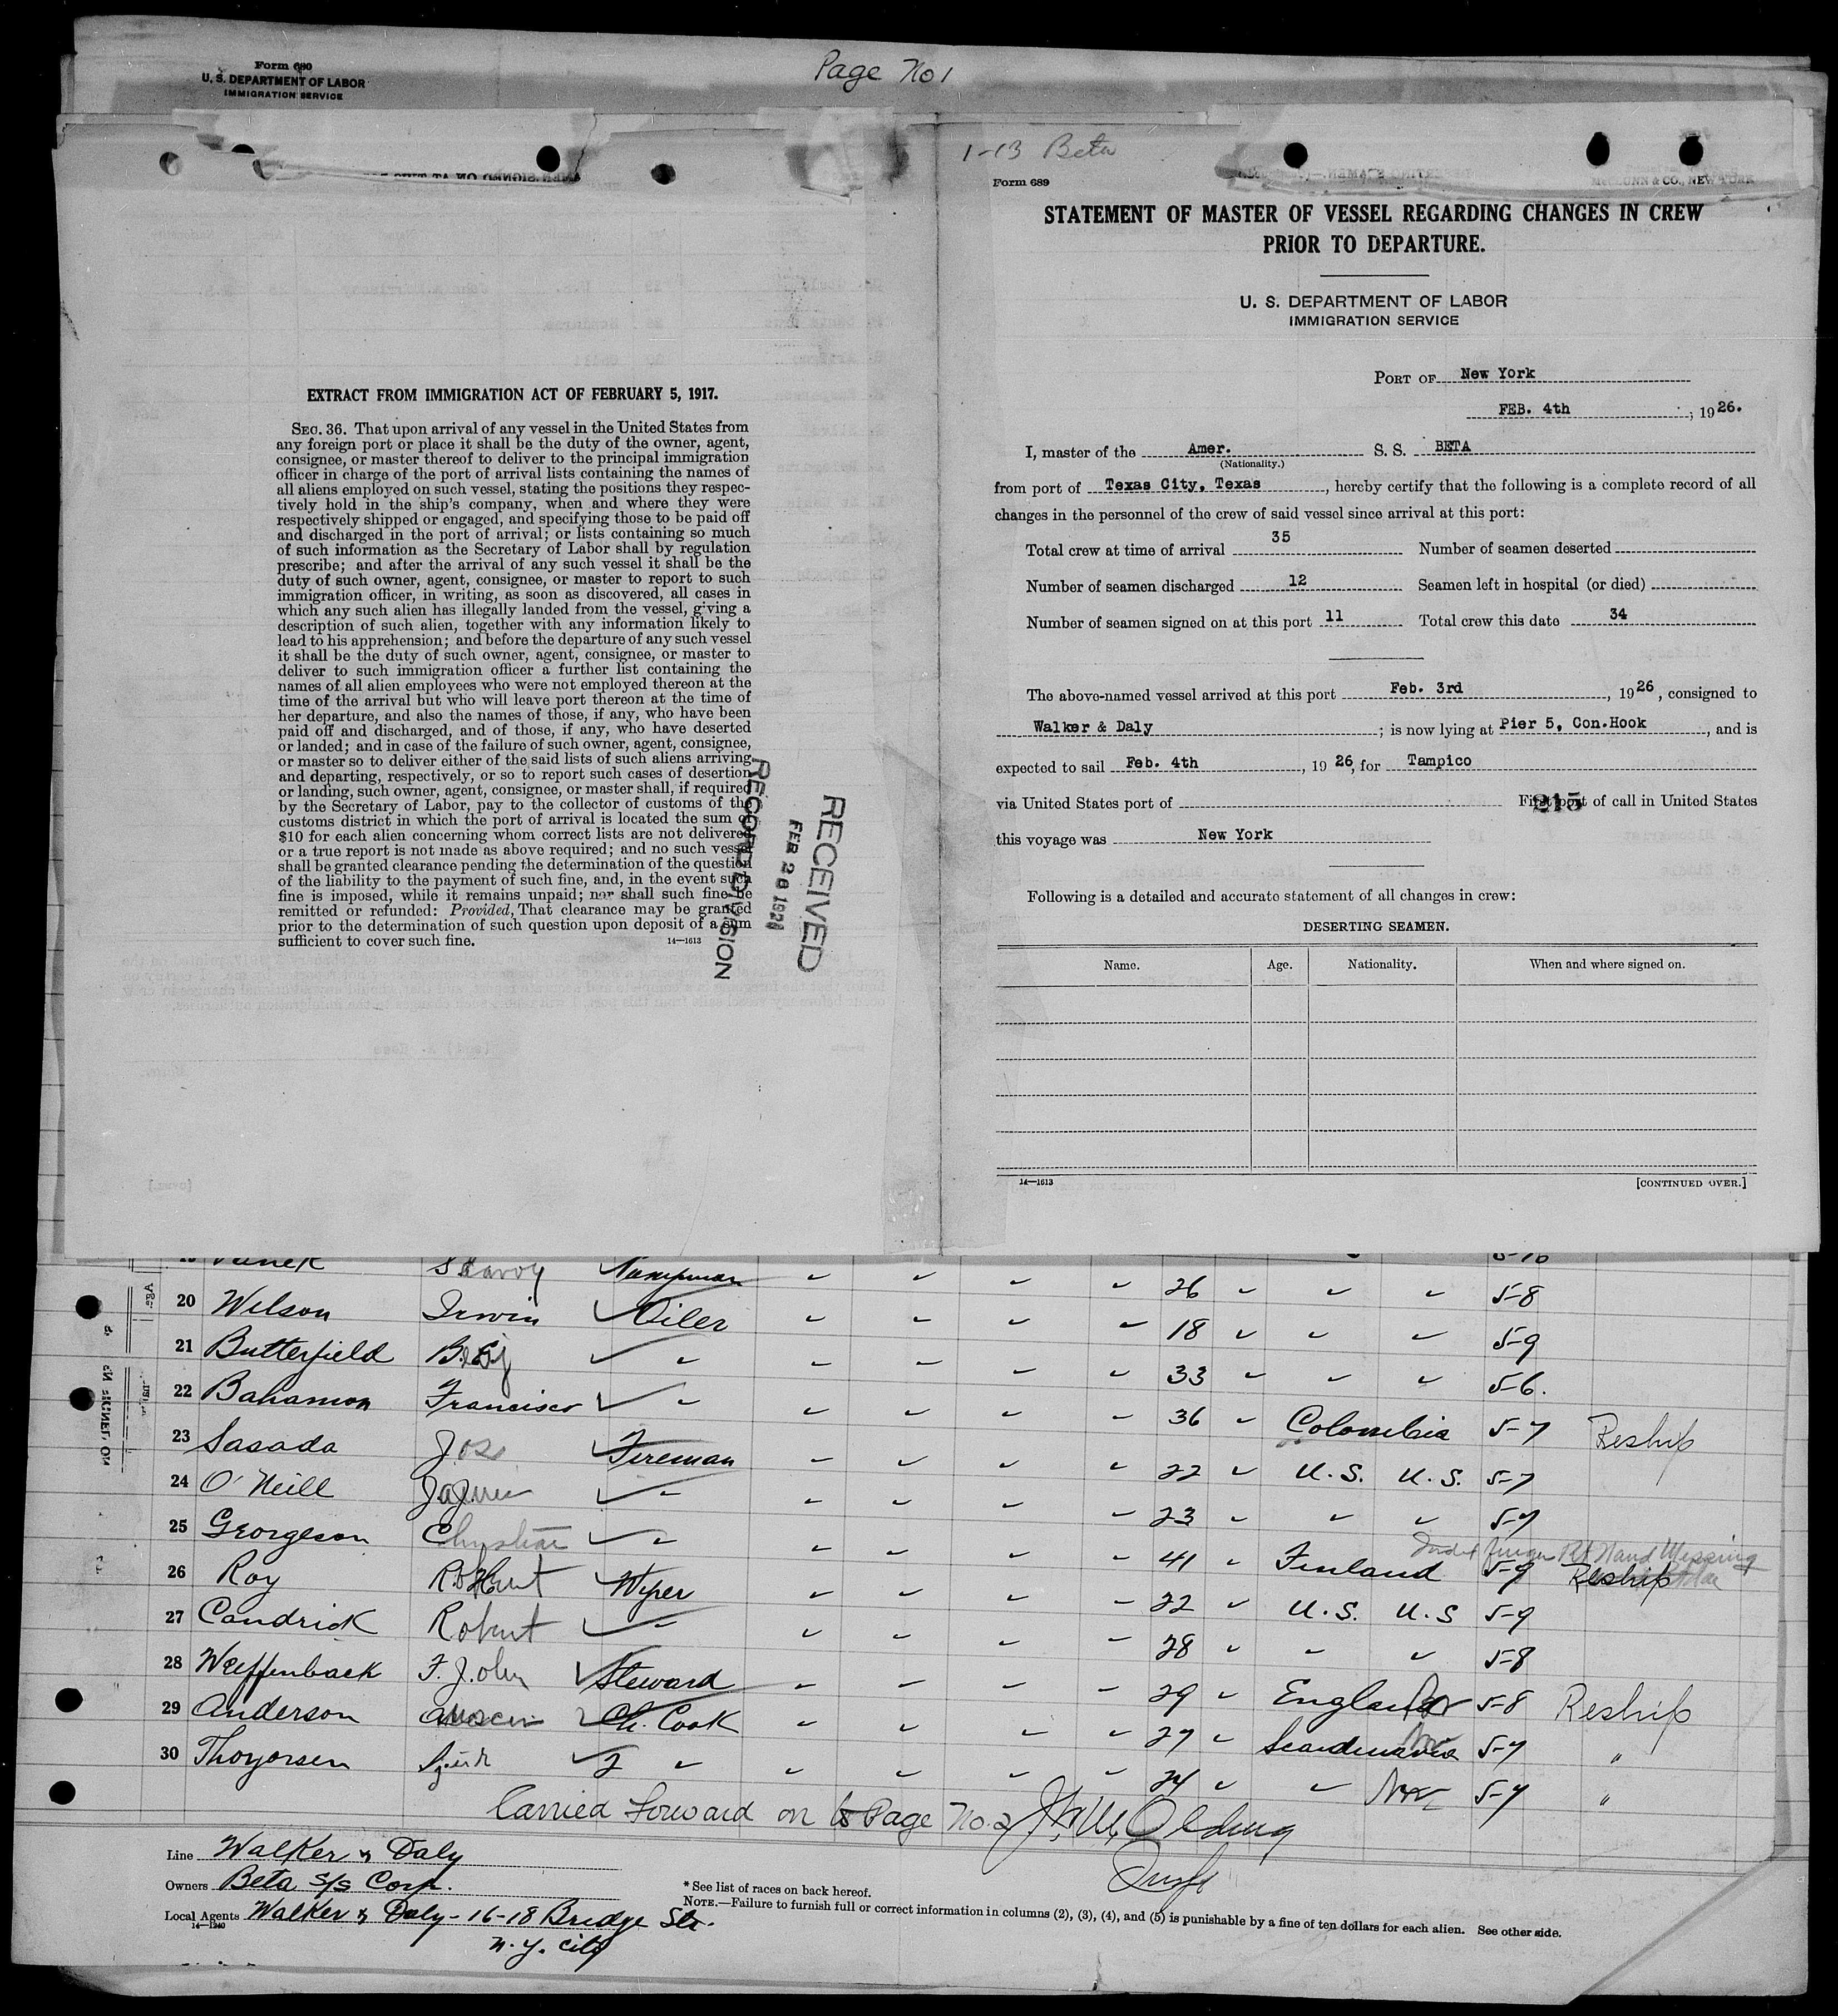 Form 680
U. S. DEPARTMENT OF LABOR
IMMIGRATION SERVICE
Page No 1
EXTRACT FROM IMMIGRATION ACT OF FEBRUARY 5, 1917.
SEC. 36. That upon arrival of any vessel in the United States from
any foreign port or place it shall be the duty of the owner, agent,
consignee, or master thereof to deliver to the principal immigration
officer in charge of the port of arrival lists containing the names of
all aliens employed on such vessel, stating the positions they respec-
tively hold in the ship's company, when and where they were
respectively shipped or engaged, and specifying those to be paid off
and discharged in the port of arrival; or lists containing so much
of such information as the Secretary of Labor shall by regulation
prescribe; and after the arrival of any such vessel it shall be the
duty of such owner, agent, consignee, or master to report to such
immigration officer, in writing, as soon as discovered, all cases in
which any such alien has illegally landed from the vessel, giving a
description of such alien, together with any information likely to
lead to his apprehension; and before the departure of any such vessel
it shall be the duty of such owner, agent, consignee, or master to
deliver to such immigration officer a further list containing the
names of all alien employees who were not employed thereon at the
time of the arrival but who will leave port thereon at the time of
her departure, and also the names of those, if any, who have been
paid off and discharged, and of those, if any, who have deserted
or landed; and in case of the failure of such owner, agent, consignee,
or master so to deliver either of the said lists of such aliens arriving
and departing, respectively, or so to report such cases of desertion
or landing, such owner, agent, consignee, or master shall, if required
by the Secretary of Labor, pay to the collector of customs of the
customs district in which the port of arrival is located the sum of
$10 for each alien concerning whom correct lists are not delivered
or a true report is not made as above required; and no such vessel
shall be granted clearance pending the determination of the question
of the liability to the payment of such fine, and, in the event such
fine is imposed, while it remains unpaid; nor shall such fine be
remitted or refunded: Provided, That clearance may be granted
prior to the determination of such question upon deposit of a sum
sufficient to cover such fine. 14—1613
RECEIVED
FEB 26 192
RECORD DIVISION
1-13 Beta
Form 689
McGLUNN & CO., NEW YORK
STATEMENT OF MASTER OF VESSEL REGARDING CHANGES IN CREW
PRIOR TO DEPARTURE.
U. S. DEPARTMENT OF LABOR
IMMIGRATION SERVICE
PORT OF New York
FEB. 4th, 1926.
I, master of the Amer. S. S. BETA
(Nationality.)
from port of Texas City, Texas, hereby certify that the following is a complete record of all
changes in the personnel of the crew of said vessel since arrival at this port:
Total crew at time of arrival 35 Number of seamen deserted
Number of seamen discharged 12 Seamen left in hospital (or died)
Number of seamen signed on at this port 11 Total crew this date 34
The above-named vessel arrived at this port Feb. 3rd, 1926, consigned to
Walker & Daly; is now lying at Pier 5, Con.Hook, and is
expected to sail Feb. 4th, 1926, for Tampico
via United States port of First port of call in United States
215
this voyage was New York
Following is a detailed and accurate statement of all changes in crew:
DESERTING SEAMEN.
Name. Age. Nationality. When and where signed on.
14—1613 [CONTINUED OVER.]
26 5-8
20 Wilson Irwin Oiler 18 5-9
21 Butterfield 33 5-6.
22 Bahamon Francisco 36 Colombia 5-7 Reship
23 Sasada Jos Fireman 22 U.S. U.S. 5-7
24 O'Neill 23 5-7
25 Georgeson Christian 41 Finland 5-9 Reship
Index finger Rt Hand Missing
26 Roy Robert Wiper 22 U.S. U.S 5-9
27 Candrick Robert 28 5-8
28 Weiffenback F. John Steward 29 England 5-8 Reship
29 Anderson Ch. Cook 27 Scandinavia Nor 5-7 "
30 Thoyorsen 2 24 Nor 5-7 "
Carried Forward on Page No. 2
Line Walker & Daly
Owners Beta S/S Corp.
Local Agents Walker & Daly - 16-18 Bridge Str.
14—1240
N.Y. City
* See list of races on back hereof.
NOTE.—Failure to furnish full or correct information in columns (2), (3), (4), and (5) is punishable by a fine of ten dollars for each alien. See other side.